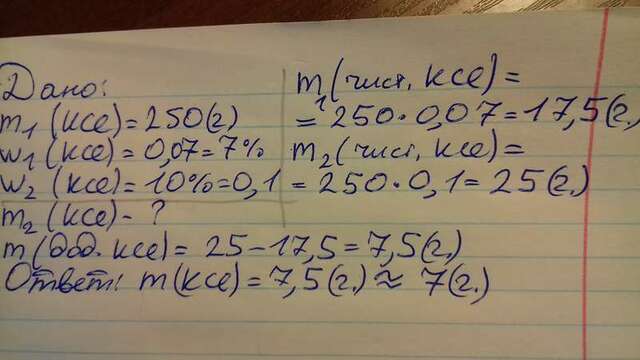 Дано:
m₁ (ксе) = 250(г)
w₁ (ксе) = 0,07 = 7%
w₂ (ксе) = 10% = 0,1
m₂ (ксе) - ?
m₁(чист. ксе) =
= 250·0,07 = 17,5(г.)
m₂ (чист. ксе) =
= 250·0,1 = 25(г.)
m(доб. ксе) = 25-17,5 = 7,5(г.)
Ответ: m(ксе) = 7,5(г.) ≈ 7(г.)